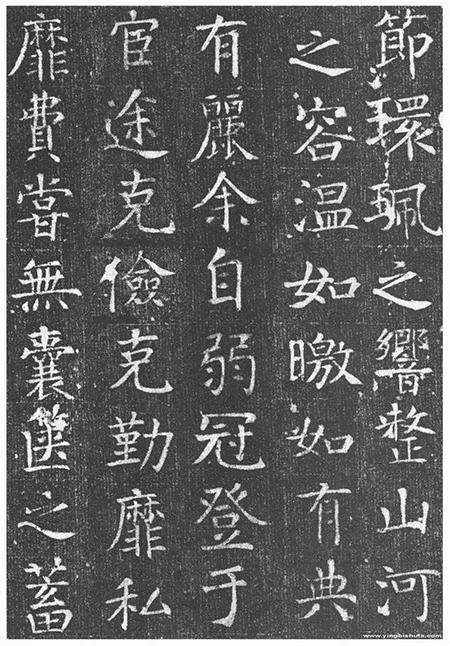 節環珮之響整山河
之容温如曒如有典
有麗余自弱冠登于
宦途克儉克勤靡私
靡費嘗無囊篋之蓄
www.yingbishufa.com